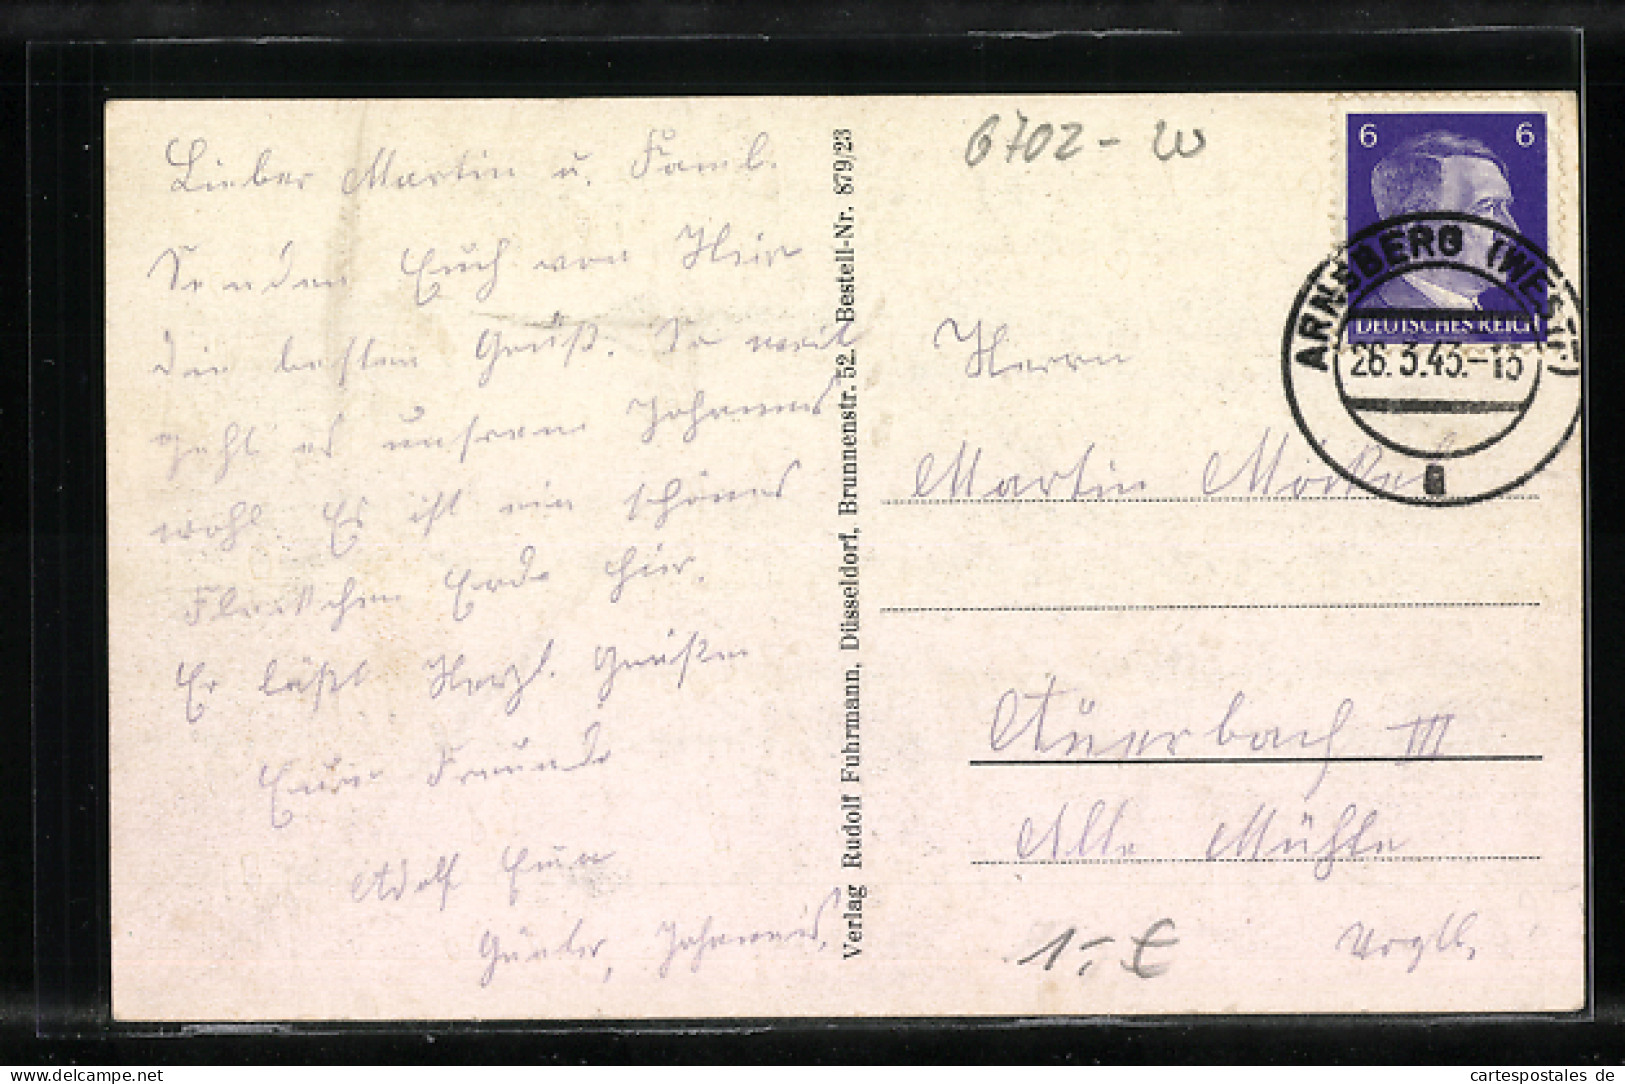 Lieber Martin u. Faml.
Senden Euch von Hier
die besten Grüße. So weit
geht es unserem Johannes
wohl Es ist ein schönes
Fleckchen Erde hier.
Er läßt Herzl. Grüßen
Eure Freunde
Adolf
Günter, Johannes,
Verlag Rudolf Fuhrmann, Düsseldorf, Brunnenstr. 52. Bestell-Nr. 879/23
6702 - W
6 6
DEUTSCHES REICH
ARNSBERG (WESTF)
26.3.43.-13
a
Herrn
Martin
Auerbach III
Alte Mühle
Vogtl.
1.- €
cartespostales de